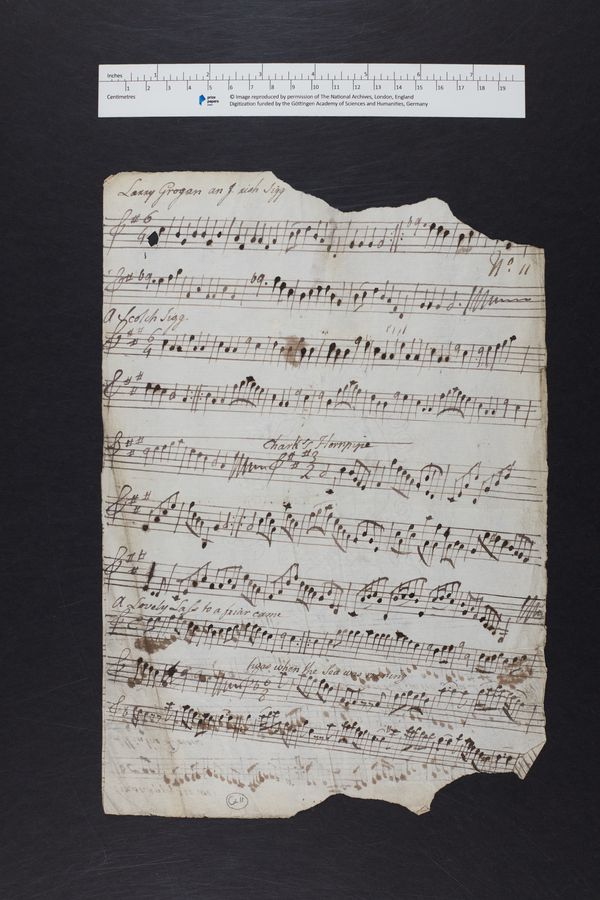 Inches 1 2 3 4 5 6 7
1 2 3 4 5 6 7 8 9 10 11 12 13 14 15 16 17 18 19
Centimetres
prize papers
© Image reproduced by permission of The National Archives, London, England
Digitization funded by the Göttingen Academy of Sciences and Humanities, Germany
Larry Grogan an Irish Jigg
No. 11
A Scotch Jigg
6
3
2
Chark's Hornpipe
A Lovely Lass to a friar came
twas when the Sea was roaring